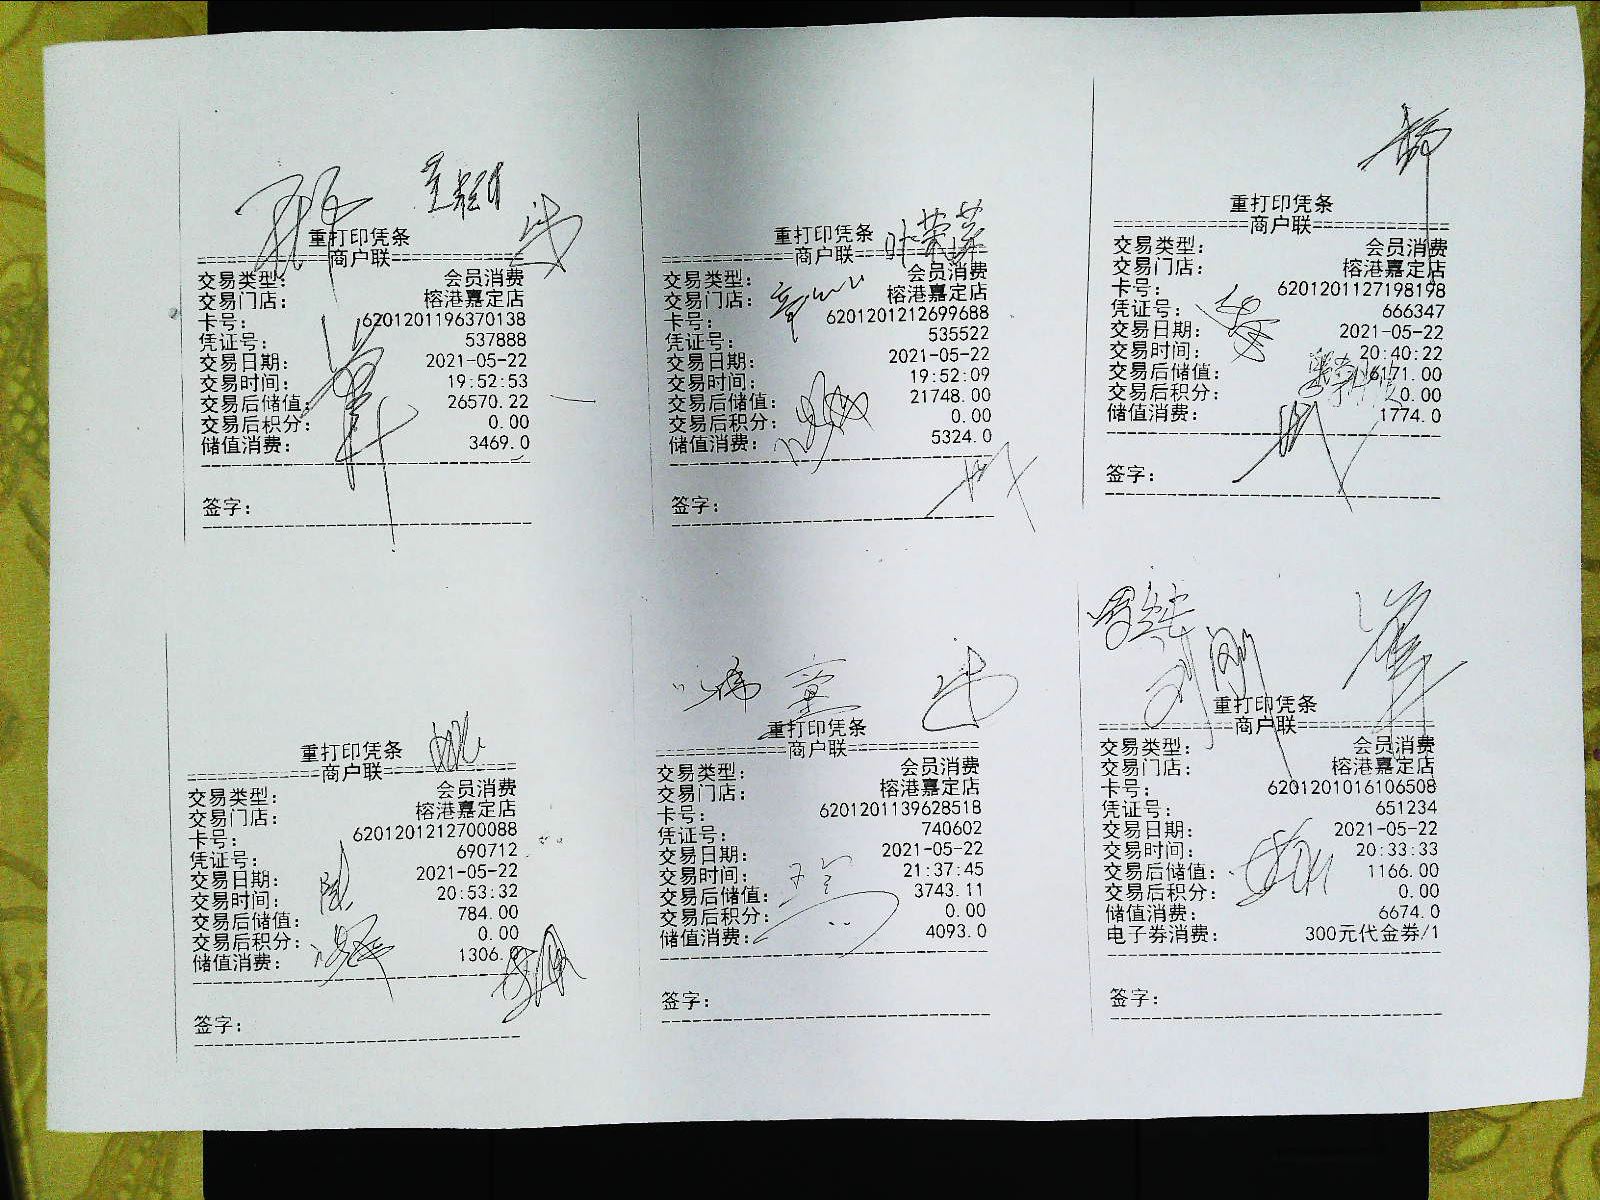 重打印凭条
商户联
交易类型： 会员消费
交易门店： 榕港嘉定店
卡号： 6201201196370138
凭证号： 537888
交易日期： 2021-05-22
交易时间： 19:52:53
交易后储值： 26570.22
交易后积分： 0.00
储值消费： 3469.0
签字：
重打印凭条
商户联
交易类型： 会员消费
交易门店： 榕港嘉定店
卡号： 6201201212699688
凭证号： 535522
交易日期： 2021-05-22
交易时间： 19:52:09
交易后储值： 21748.00
交易后积分： 0.00
储值消费： 5324.0
签字：
重打印凭条
商户联
交易类型： 会员消费
交易门店： 榕港嘉定店
卡号： 6201201127198198
凭证号： 666347
交易日期： 2021-05-22
交易时间： 20:40:22
交易后储值： 6171.00
交易后积分： 0.00
储值消费： 1774.0
签字：
重打印凭条
商户联
交易类型： 会员消费
交易门店： 榕港嘉定店
卡号： 6201201212700088
凭证号： 690712
交易日期： 2021-05-22
交易时间： 20:53:32
交易后储值： 784.00
交易后积分： 0.00
储值消费： 1306.0
签字：
童
重打印凭条
商户联
交易类型： 会员消费
交易门店： 榕港嘉定店
卡号： 6201201139628518
凭证号： 740602
交易日期： 2021-05-22
交易时间： 21:37:45
交易后储值： 3743.11
交易后积分： 0.00
储值消费： 4093.0
签字：
重打印凭条
商户联
交易类型： 会员消费
交易门店： 榕港嘉定店
卡号： 6201201016106508
凭证号： 651234
交易日期： 2021-05-22
交易时间： 20:33:33
交易后储值： 1166.00
交易后积分： 0.00
储值消费： 6674.0
电子券消费： 300元代金券/1
签字：